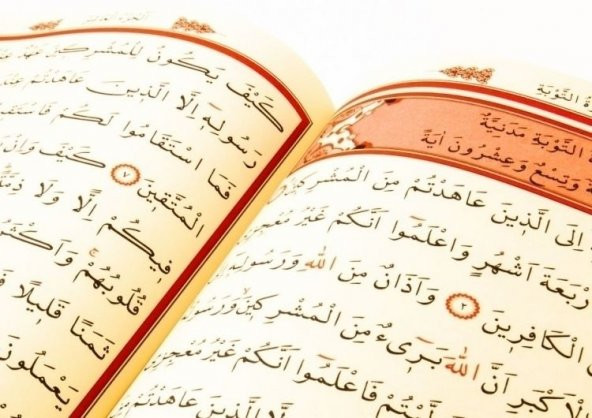 التَّوْبَةِ
التَّوْبَةِ مَدَنِيَّةٌ
وَتِسْعٌ وَعِشْرُونَ اٰيَةً
اِلَى الَّذِينَ عَاهَدْتُمْ مِنَ الْمُشْرِكِينَ
رْبَعَةَ اَشْهُرٍ وَاعْلَمُوا اَنَّكُمْ غَيْرُ مُعْجِزِي
الْكَافِرِينَ ٢ وَاَذَانٌ مِنَ اللّٰهِ وَرَسُولِهِ
الْاَكْبَرِ اَنَّ اللّٰهَ بَرِىءٌ مِنَ الْمُشْرِكِينَ وَرَسُولُهُ
تُمْ فَاعْلَمُوا اَنَّكُمْ غَيْرُ مُعْجِزِي
كَيْفَ يَكُونُ لِلْمُشْرِكِينَ عَهْدٌ
رَسُولِهِ اِلَّا الَّذِينَ عَاهَدْتُمْ
فَمَا اسْتَقَامُوا لَكُمْ فَاسْتَقِيمُوا
الْمُتَّقِينَ ٧ كَيْفَ وَاِنْ
فِيكُمْ اِلًّا وَلَا ذِمَّةً
قُلُوبُهُمْ وَاَكْثَرُ
ثَمَنًا قَلِيلًا
يَعْمَلُونَ